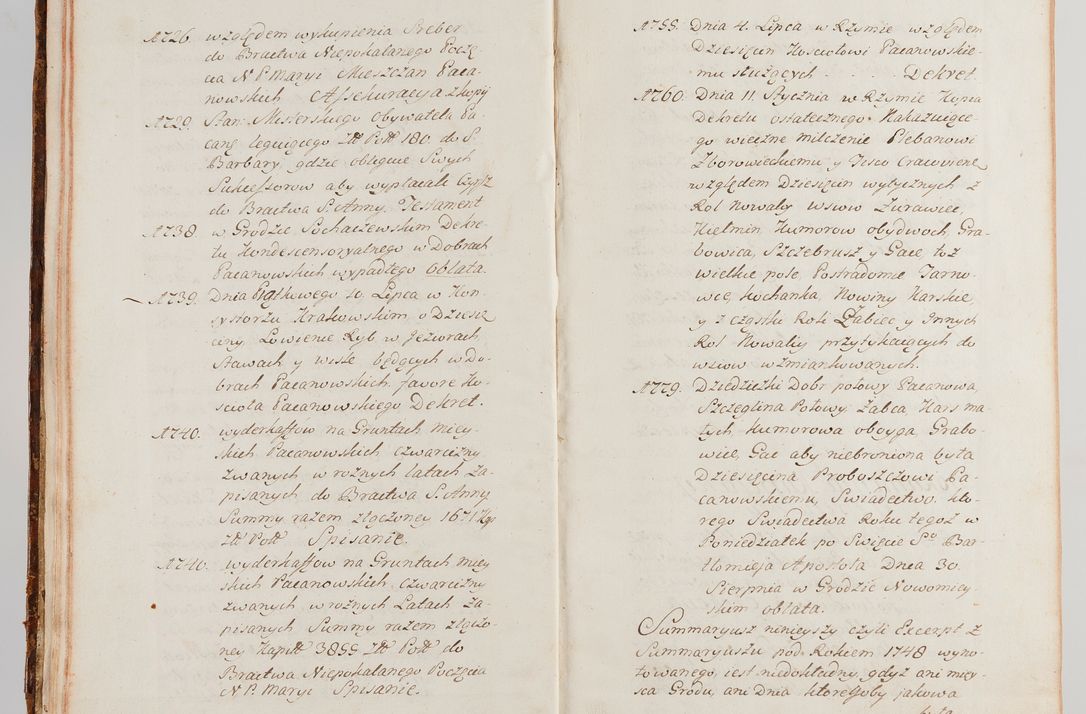 1726. względem wykupienia Sreber
do Bractwa Niepokalanego Poczę-
cia N. P. Maryi Mieszczan Paca-
nowskich Assekuracya z kopij
1729. Stan: Misterskiego Obywatela Pa-
cano: leguiącego Złł Poll 180. do S.
Barbary, gdzie obliguie Swych
Sukcessorow aby wypłacali Czynsz
do Bractwa S. Anny. Testament
1738. w Grodzie Sochaczewskim Dekre-
tu Kondescensoryalnego w Dobrach
Pacanowskich wypadłego Oblata.
1739. Dnia Piątkowego 10. Lipca w Kon-
systorzu Krakowskim o Dziesię-
ciny Łowienie Ryb w Jeziorach,
Stawach y wiśle będących w Do-
brach Pacanowskich, favore Ko-
scioła Pacanowskiego Dekret.
1740. wyderkaffow na Gruntach miey-
skich Pacanowskich, czwarcizny
zwanych w rożnych latach za-
pisanych do Bractwa S. Anny
Summy razem złączoney 1671
Złł Poll Spisanie.
1740. wyderkaffow na Gruntach miey
skich Pacanowskich, czwarcizny
zwanych w rożnych Latach za-
pisanych Summy razem złączo-
ney Kapitł 3855 Złł Poll do
Bractwa Niepokalanego Poczęcia
N. P. Maryi Spisanie.
1755. Dnia 4. Lipca w Rzymie względem
Dziesięcin Kosciołowi Pacanowskie-
mu służących . . . . Dekret.
1760. Dnia 11. Stycznia w Rzymie Kopia
Dekretu ostatecznego Nakazuiące-
go wieczne milczenie Plebanowi
Zborowieckiemu y Fisco Cracoviensi
względem Dziesięcin wytycznych z
Rol Nowaly wsiow Zurawiec,
Kielmin Kumorow obydwoch Gra-
bowica, Szczebrusz y Gace, toż
wielkie pole, Postradomie Jarno-
wce, Kochanka, Nowiny Karskie,
y z cząstki Roli Zabiec y Innych
Rol Nowaliy przytykaiących do
wsiow wzmiankowanych.
1779. Dziedziczki Dobr połowy Pacanowa,
Szczeglina Połowy Zabca, Kars ma-
łych Kumorowa oboyga, Grabo-
wiec, Gac aby niebroniona była
Dziesięcina Proboszczowi Pa-
canowskiemu, Swiadectwo kto-
rego Swiadectwa Roku tegoż w
Poniedziałek po Swięcie So Bar-
tłomieja Apostoła Dnia 30.
Sierpnia w Grodzie Nowomiey-
skim oblata.
Summaryusz ninieyszy czyli Excerpt z
Summaryuszu pod Rokiem 1748 wyno-
towanego, iest niedokładny, gdyż ani miey-
sca Grodu, ani Dnia któregoby jakowa